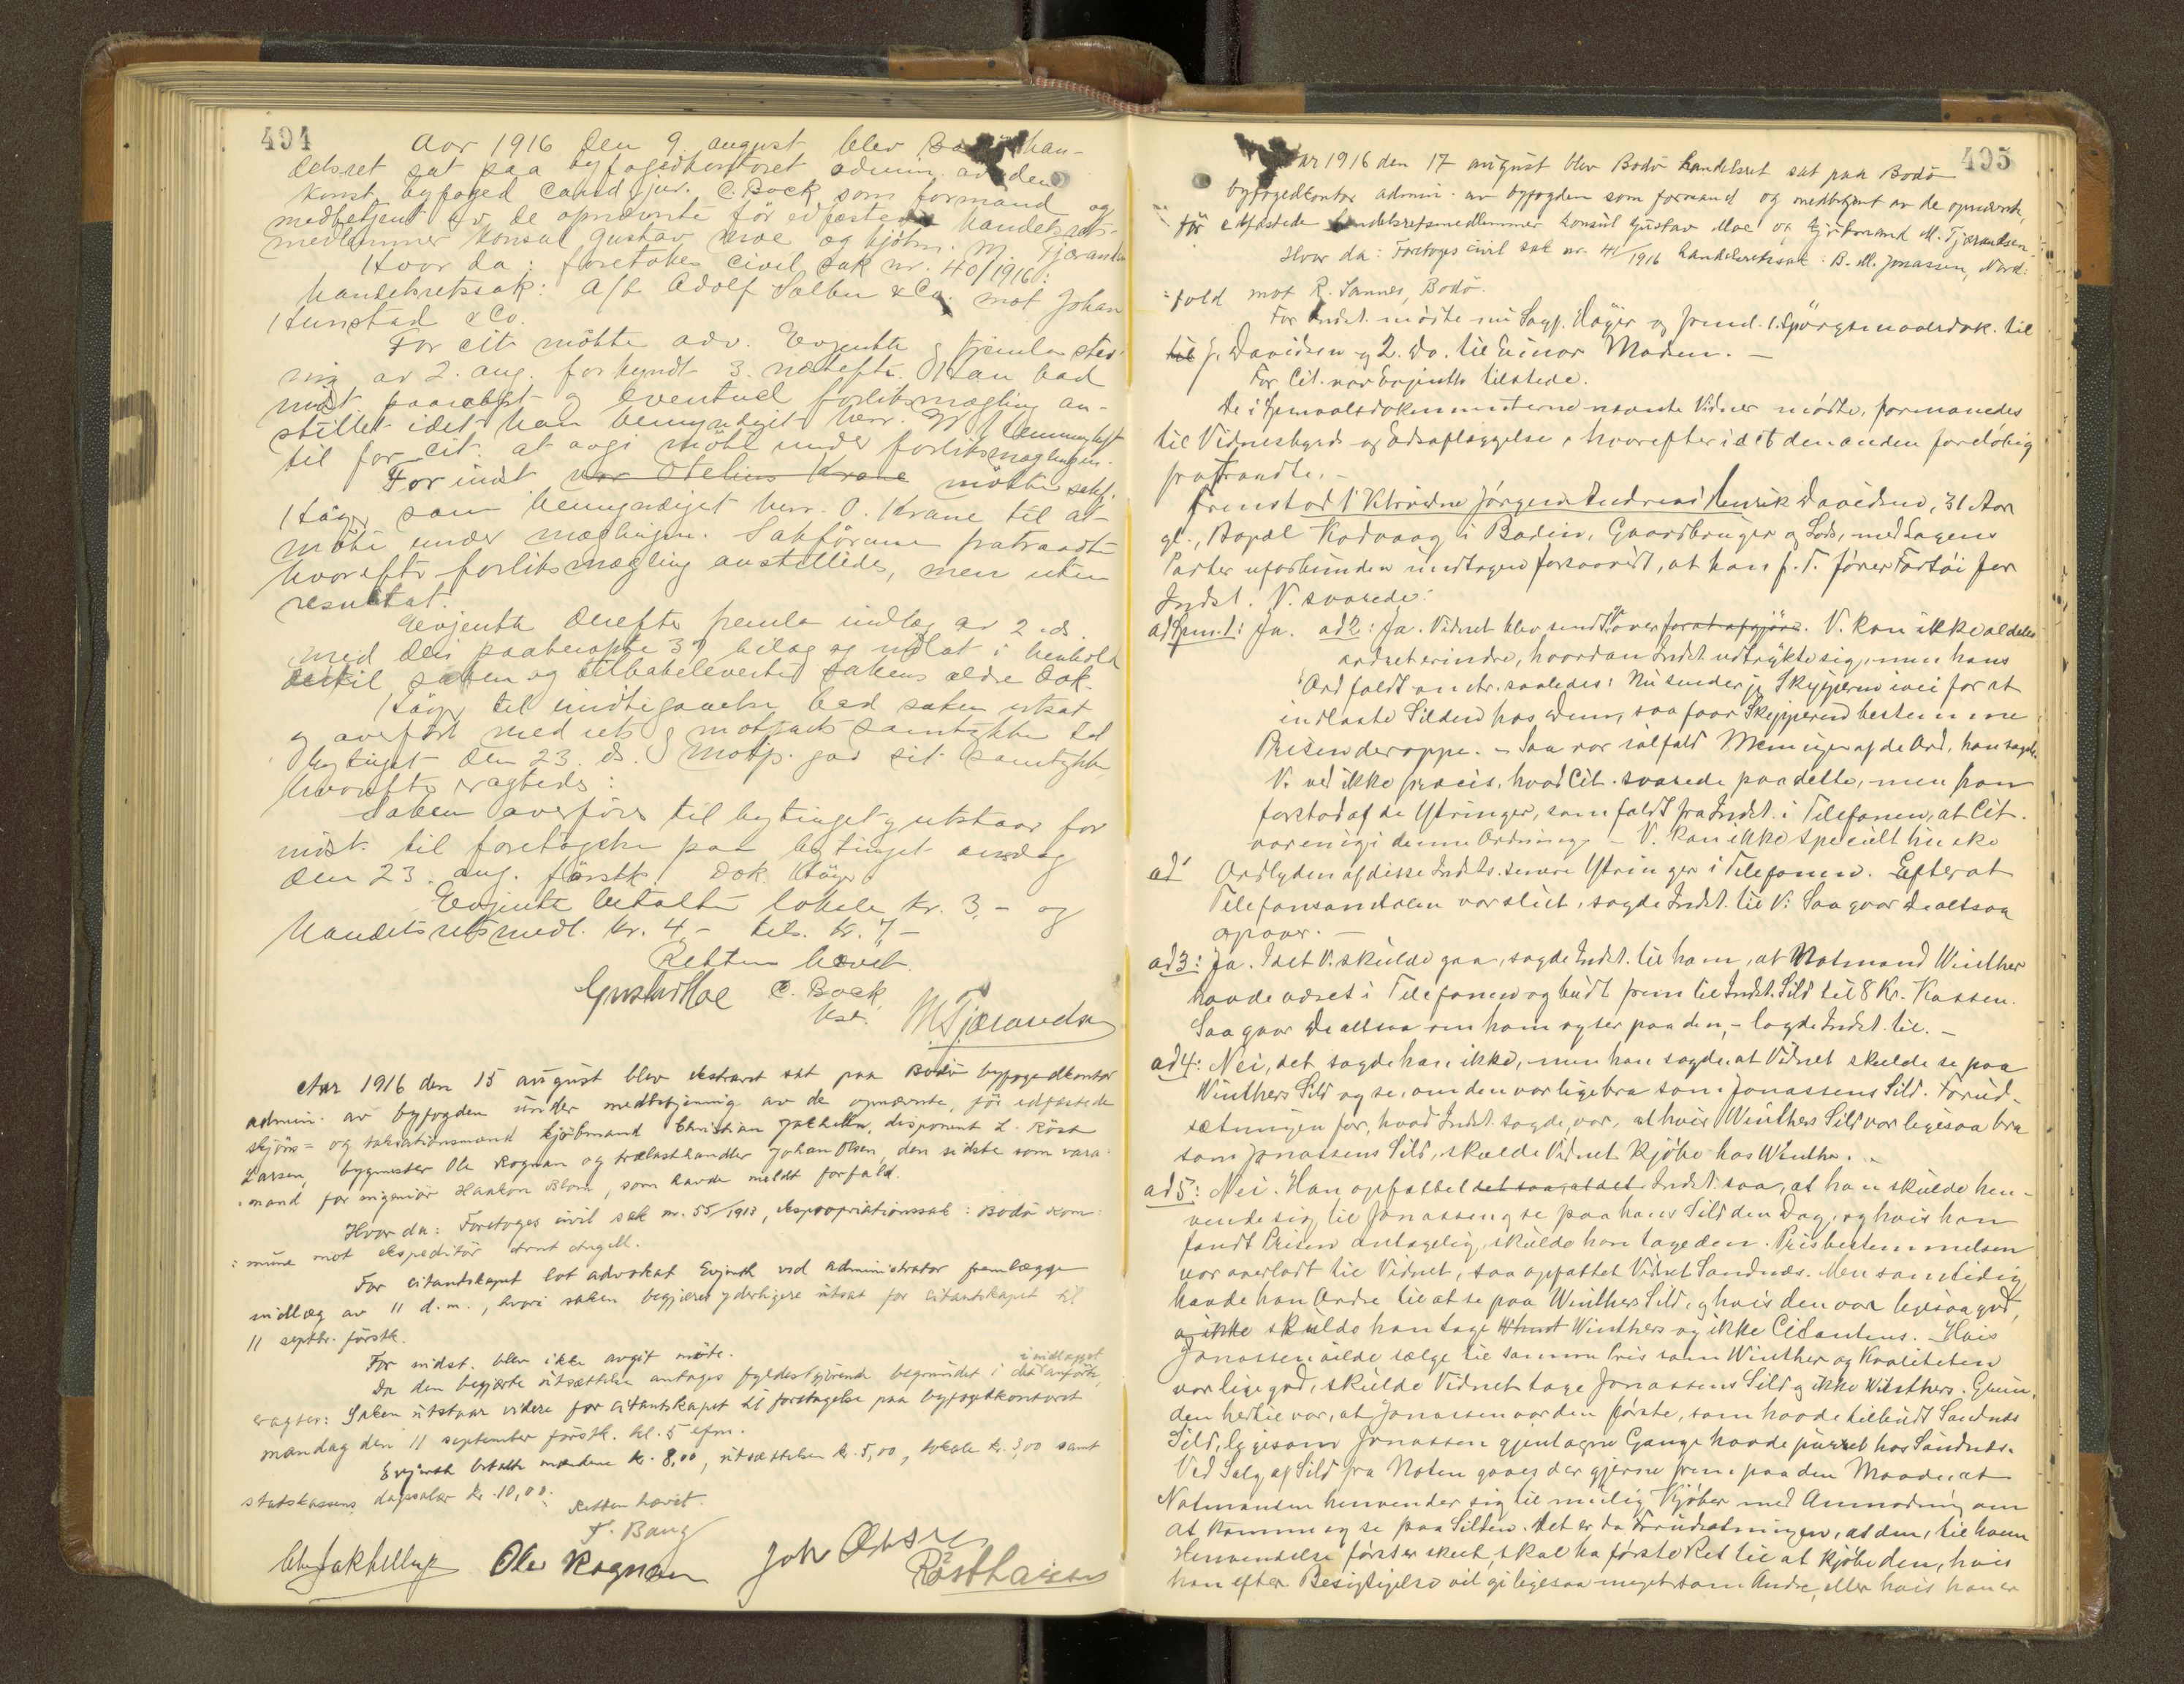 494
Aar 1916 den 9. august blev han-
delsret sat paa byfogedkontoret admin. av den
konst. byfoged cand. jur. C. Bock som formand og
medbetjent av de opnævnte før edfæstede handelsrets-
medlemmer konsul Gustav Moe og kjøbm. M. Tjærandsen
Hvor da: foretokes civil sak nr. 40/1916:
handelsretssak: A/S Adolf & Co. mot Johan
Hunstad & Co.
For cit. møtte adv. Evjenth & fremla stev-
ning av 2. aug. forkyndt 3. næstefter. Han bad
indst. paaraapt og eventuel forliksmægling an-
stillet idet han bemyndiget herr. W.
til for cit. at avgi møte under forliksmæglingen.
For indst. var Otelius Krane møtte sakf.
Häger som bemyndiget herr. O. Krane til at
møte under mæglingen. Sakførerne fratraadte
hvorefter forliksmægling anstilledes, men uten
resultat.
Evjenth derefter fremla indlæg av 2. ds.
med deri paaberopte 37 bilag og indlot i henhold
dertil saken og tilbakeleverte sakens ældre dok.
Häger til imøtegaaelse bad saken utsat
og overført med rets & motparts samtykke til
bytinget den 23. ds. Motp. gav sit samtykke,
hvorefter eragtedes:
Saken overføres til bytinget & utstaar for
indst. til foretagelse paa bytinget onsdag
den 23. aug. førstk. Dok. Häger.
Evjenth betalte lokale kr. 3,- og
handelsretsmedl. kr. 4,- tils. kr. 7,-
Retten hævet.
Gustav Moe C. Bock M. Tjærandsen
kst.
Aar 1916 den 15 august blev ekstraret sat paa Bodø byfogedkontor
admin. av byfogden under medbetjening av de opnævnte, før edfæstede
skjøns- og taksationsmænd kjøbmand Christian Jakhelln, disponent L. Røst
Larsen, bygmester Ole Rognan og trælasthandler Johan Olsen, den sidste som vara-
mand for ingeniør Haakon Blom, som havde meldt forfald.
Hvor da: Foretoges civil sak nr. 55/1913, ekspropriationssak: Bodø kom-
mune mot ekspeditør Arnt Angell.
For citantskapet lot advokat Evjenth ved administrator fremlægge
indlæg av 11 d.m., hvori saken begjæres yderligere utsat for citantskapet til
11 septbr. førstk.
For indst. blev ikke avgit møte.
Da den begjærte utsættelse antages fyldestgjørende begrundet i det i indlægget anførte,
eragtes: Saken utstaar videre for citantskapet til foretagelse paa byfogedkontoret
mandag den 11 september førstk. kl. 5 efm.
Evjenth betalte mændene kr. 8,00, utsættelsen kr. 5,00, lokale kr. 3,00 samt
statskassens dagsalær kr. 10,00.
Retten hævet.
F. Bang
Chr. Jakhelln Ole Rognan Joh Olsen
Røst Larsen
495
Aar 1916 den 17 august blev Bodø handelsret sat paa Bodø
byfogedkontor admin. av byfogden som formand og medbetjent av de opnævnte,
før edfæstede handelsretsmedlemmer konsul Gustav Moe og kjøbmand M. Tjærandsen
Hvor da: Foretoges civil sak nr. 41/1916 handelsretssak: B. M. Jonassen, Nord-
fold mot R. Sannes, Bodø.
For Indst. mødte nu Sagf. Häger og freml. 1. Spörgsmaalsdok. til
til J. Davidsen og 2. do. til Einar Madsen. —
For Cit. var Evjenth tilstede.
De i Spmaalsdokumenterne nævnte Vidner mødte, formanedes
til Vidnesbyrds og Edsaflæggelse, hvorefter idet den anden foreløbig
fratraadte. —
Fremstod 1' Vidne Jørgen Andreas Henrik Davidsen, 31 Aar
gl., Bopæl Kodvaag i Bodin, Gaardbruger og Lods, med Sagens
Parter uforbunden undtagen forsaavidt, at han f. T. fører Fartøi for
Indst. V. svarede:
ad Spm. 1: Ja. ad 2: Ja. Vidnet blev sendt over for at afgjøre. V. kan ikke aldeles
ordret erindre, hvordan Indst. udtrykte sig, men hans
Ord faldt omtr. saaledes: Nu sender jeg Skipperen ivei for at
indlaste Silden hos Dem, saa faar Skipperen bestemme
Prisen deroppe. – Saa var ialfald Meningen af de Ord, han sagde.
V. ved ikke præcis, hvad Cit. svarede paa dette, men han
forstod af de Ytringer, som faldt fra Indst. i Telefonen, at Cit.
var enig i denne Ordning. – V. kan ikke specielt huske
ad Ordlyden af disse Indsts. senere Ytringer i Telefonen. Efter at
Telefonsamtalen var slut, sagde Indst. til V: Saa gaar De altsaa
opover. —
ad 3: Ja. Idet V. skulde gaa, sagde Indst. til ham, at Notmand Winther
havde været i Telefonen og budt frem til Indst. Sild til 8 Kr. Kassen.
Saa gaar De altsaa om ham og ser paa den, – lagde Indst. til. —
ad 4: Nei, det sagde han ikke, men han sagde at Vidnet skulde se paa
Winthers Sild og se, om den var ligebra som Jonassens Sild. Forud-
sætningen for, hvad Indst. sagde, var, at hvis Winthers Sild var ligesaa bra
som Jonassens Sild, skulde Vidnet kjøbe hos Winther. —
ad 5: Nei. Han opfattet det saa, at det Indst. saa, at han skulde hen-
vende sig til Jonassen og se paa hans Sild den Dag, og hvis han
fandt Prisen antagelig, skulde han tage den. Prisbestemmelsen
var overladt til Vidnet, saa opfattet Vidnet Sandnæs. Men samtidig
havde han Ordre til at se paa Winthers Sild, og hvis den var ligesaa god,
og ikke skulde han tage Winthers og ikke Citantens. Hvis
Jonassen vilde sælge til samme Pris som Winther og Kvaliteten
var lige god, skulde Vidnet tage Jonassens Sild og ikke Winthers. Grun-
den hertil var, at Jonassen var den første, som havde tilbudt Sandnæs
Sild, ligesom Jonassen gjentagne Gange havde purret hos Sandnæs.
Ved Salg af Sild fra Noten gaaes der gjerne frem paa den Maade, at
Notmanden henvender sig til mulig Kjøber med Anmodning om
at komme og se paa Silden. Det er da Forudsætningen, at den, til hvem
Henvendelse først er skeet, skal ha første Ret til at kjøbe den, hvis
han efter Besigtigelse vil gi ligesaa meget som Andre, eller hvis han er